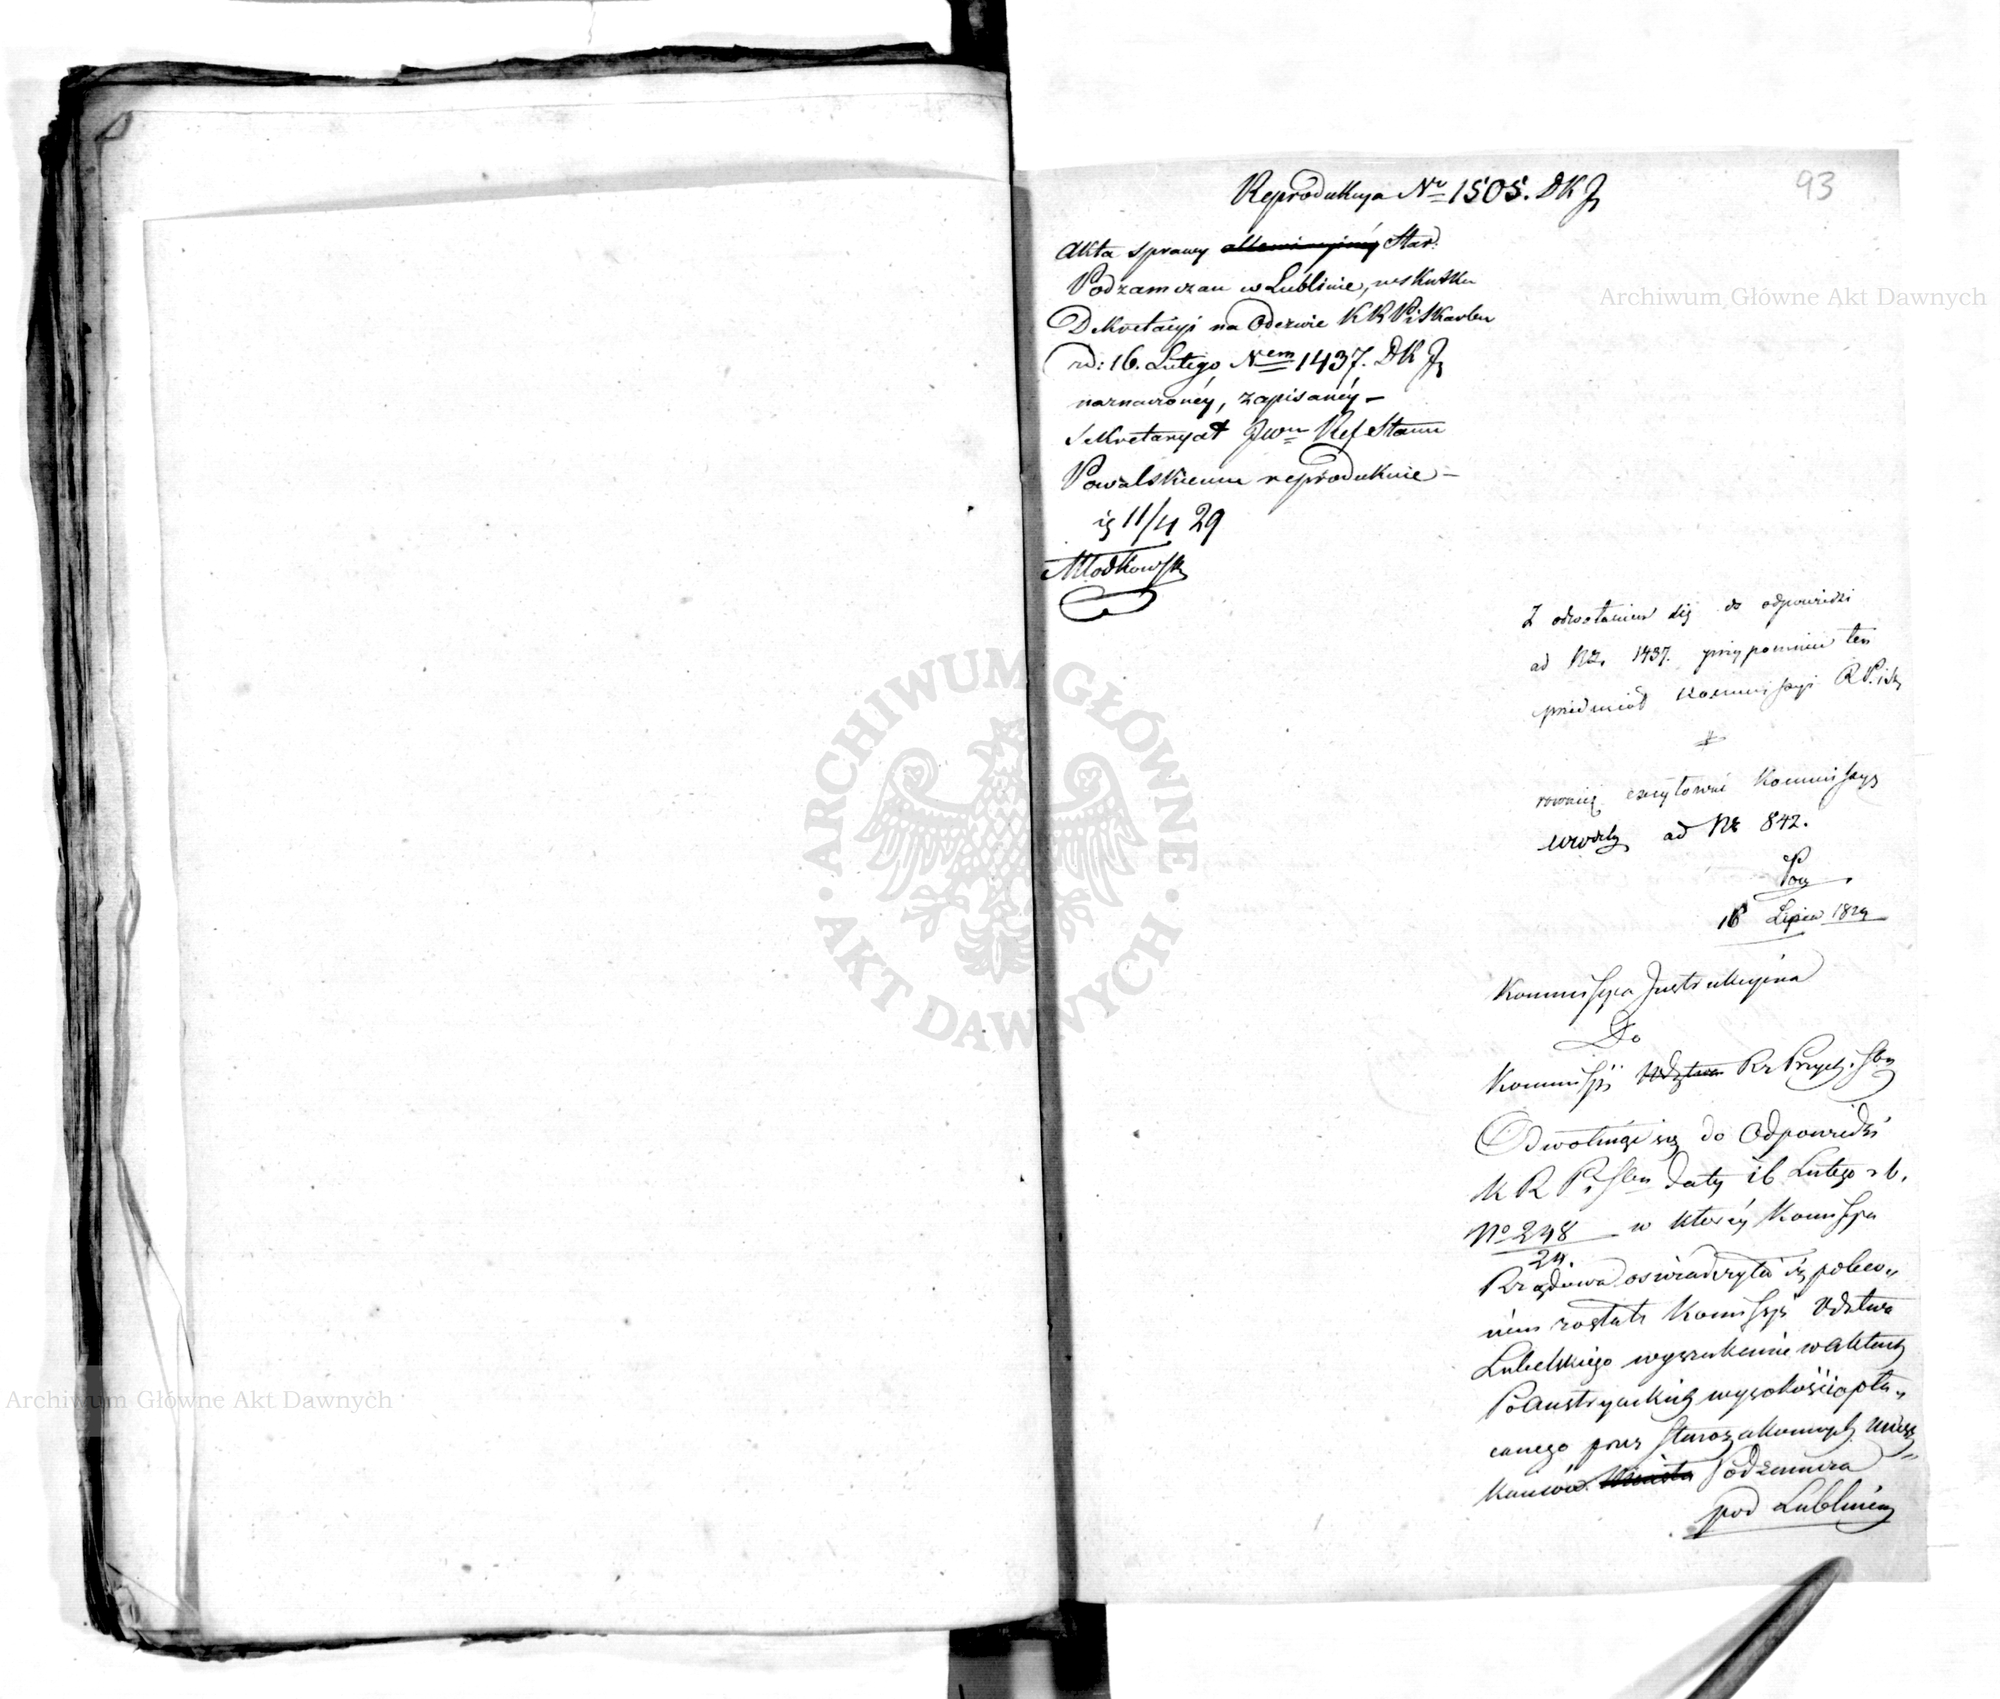 93
Reprodukcya No 1505. DKJ
Akta sprawy Star:
Podzamczan w Lublinie, w skutku
Dekretacyi na Odezwie KRPiSkarbu
z d: 16. Lutego Nem 1437. DKJ
naznaczonéy, zapisanéy –
Sekretaryat JWu Ref Stanu
Powalskiemu reprodukuie –
11/4 29
Młodkowski
Z odwołaniem się do odpowiedzi
ad Nr. 1437. przypomnieć ten
przedmiot Kommissyi R.P.iSk
rownież Kommissyą
ad Nr 842.
Pow
16 Lipca 1829
Kommissya Instrukcyina
Do
Kommissyi Rz Przych. i Sbu
Odwołuiąc się do Odpowiedzi
K R P i Sbu daty 16 Lutego r b.
No 248/24. w któréy Kommissya
Rządowa oswiadczyła iż poleco„
nem zostało Kommissyi Wdztwa
Lubelskiego wyszukanie w aktach
PoAustryackich wysokości opła„
canego przez Starozakonnych miesz„
kańców Podzamcza
pod Lublinem
Archiwum Główne Akt Dawnych
Archiwum Główne Akt Dawnych
ARCHIWUM GŁÓWNE · AKT DAWNYCH ·